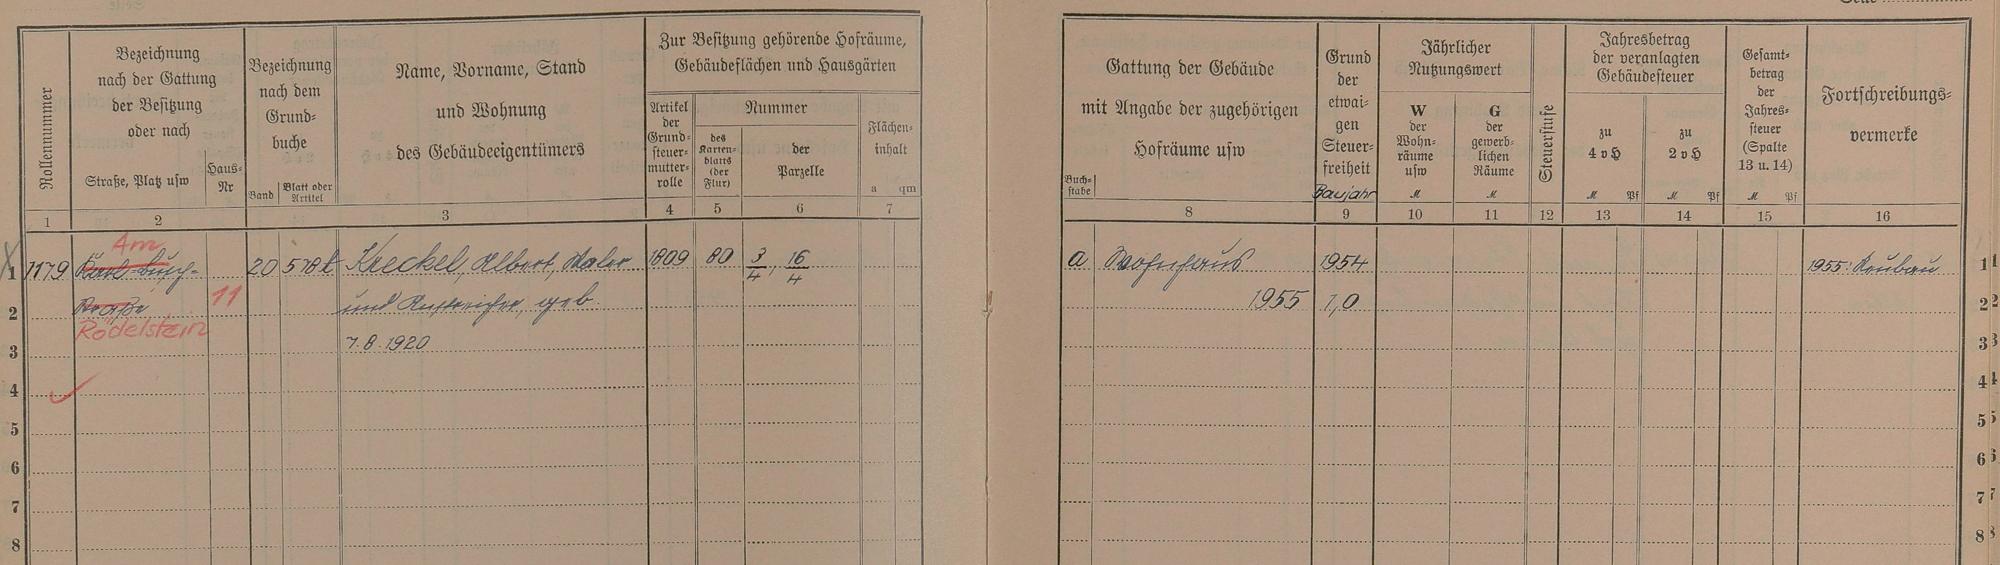 Seite
Rollennummer
Bezeichnung
nach der Gattung
der Besitzung
oder nach
Straße, Platz usw
Haus-
Nr
Bezeichnung
nach dem
Grund-
buche
Band
Blatt oder
Artikel
Name, Vorname, Stand
und Wohnung
des Gebäudeeigentümers
Zur Besitzung gehörende Hofräume,
Gebäudeflächen und Hausgärten
Artikel
der
Grund-
steuer-
mutter-
rolle
Nummer
des
Karten-
blatts
(der
Flur)
der
Parzelle
Flächen-
inhalt
a qm
1 2 3 4 5 6 7
Am
1 1179 Karl-Busch- 20 578 Kreckel, Albert, Maler 1809 80 3/4, 16/4
2 Straße 11 und Anstreicher, geb.
Rödelstein
3 7.8.1920
4
5
6
7
8
Buch-
stabe
Gattung der Gebäude
mit Angabe der zugehörigen
Hofräume usw
Grund
der
etwai-
gen
Steuer-
freiheit
Baujahr
Jährlicher
Nutzungswert
W
der
Wohn-
räume
usw
M
G
der
gewerb-
lichen
Räume
M
Steuerstufe
Jahresbetrag
der veranlagten
Gebäudesteuer
zu
4 v H
M Pf
zu
2 v H
M Pf
Gesamt-
betrag
der
Jahres-
steuer
(Spalte
13 u. 14)
M Pf
Fortschreibungs-
vermerke
8 9 10 11 12 13 14 15 16
a Wohnhaus 1954 1955: Neubau 1 1
1955 1,0 2 2
3 3
4 4
5 5
6 6
7 7
8 8